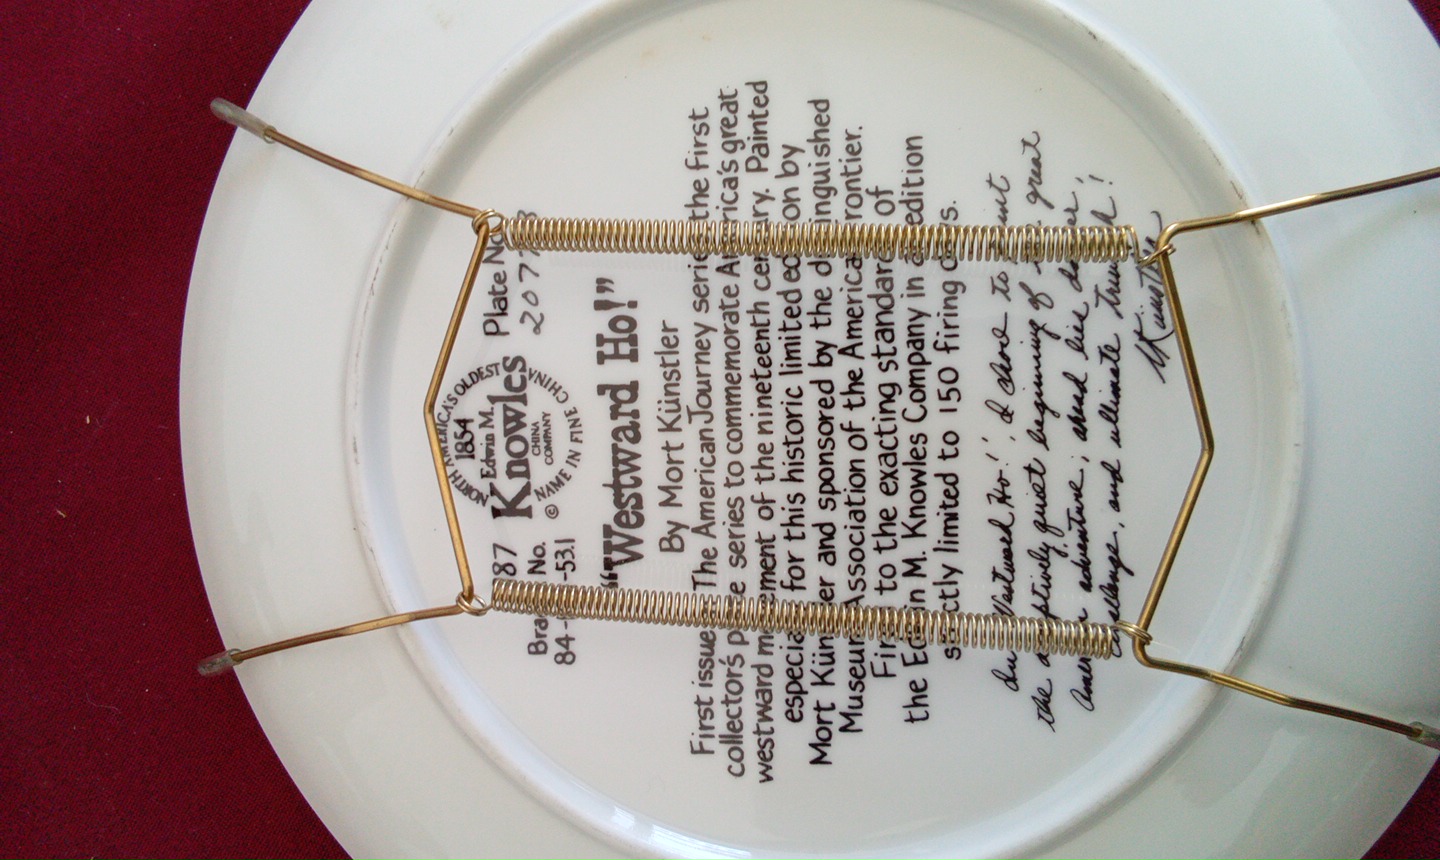 Plate No.
NORTH AMERICA'S OLDEST
1854
Edwin M.
Knowles
CHINA
COMPANY
NAME IN FINE CHINA
©
87
No.
-53.1
"Westward Ho!"
By Mort Künstler
First issue in The American Journey series, the first
collector's plate series to commemorate America's great
westward movement of the nineteenth century. Painted
especially for this historic limited edition by
Mort Künstler and sponsored by the distinguished
Museum Association of the American Frontier.
Fired to the exacting standards of
the Edwin M. Knowles Company in an edition
strictly limited to 150 firing days.
In "Westward Ho!", I chose to paint
the deceptively quiet beginning of the great
American adventure; ahead lies danger,
challenge, and ultimate triumph!
M Künstler